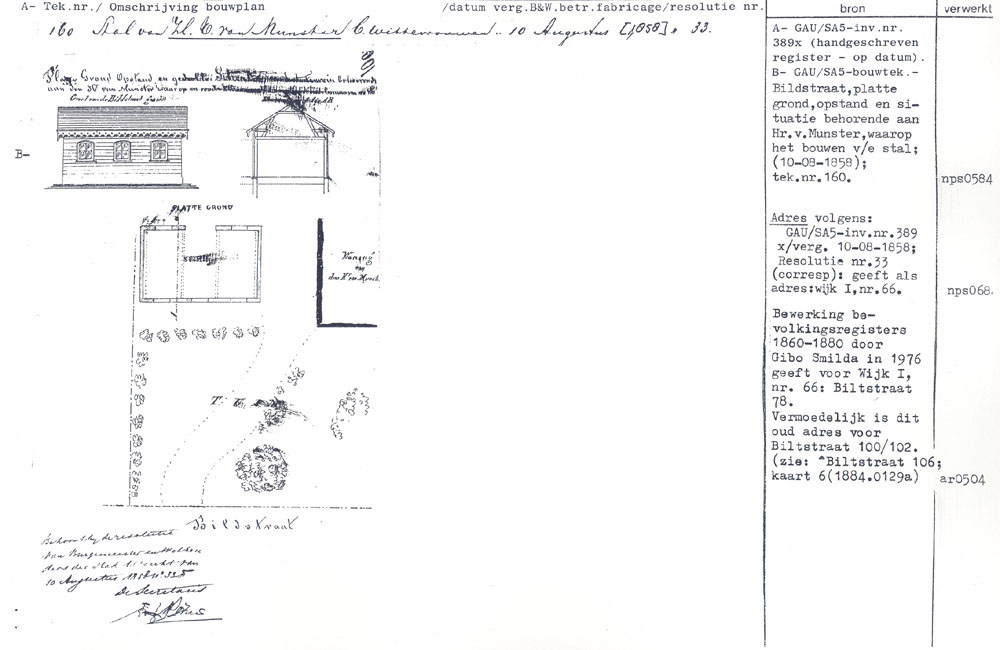 A- Tek.nr./ Omschrijving bouwplan /datum verg.B&W.betr.fabricage/resolutie nr.
160 Stal van H. C. van Munster C. Wittevrouwen.. 10 Augustus [1858] 33.
Grond Opstand en
aan den Hr van Munster waarop en
B-
PLATTE GROND
Woning
van
den Hr van Munst.
Bildstraat
Behoort bij de resolutie
van Burgemeester en Wethou
ders der stad Utrecht van
10 Augustus 1858 no 33
De Secretaris
bron
A- GAU/SA5-inv.nr.
389x (handgeschreven
register - op datum).
B- GAU/SA5-bouwtek.-
Bildstraat,platte
grond,opstand en si-
tuatie behorende aan
Hr.v.Munster,waarop
het bouwen v/e stal;
(10-08-1858);
tek.nr.160.
Adres volgens:
GAU/SA5-inv.nr.389
x/verg. 10-08-1858;
Resolutie nr.33
(corresp): geeft als
adres:wijk I,nr.66.
Bewerking be-
volkingsregisters
1860-1880 door
Gibo Smilda in 1976
geeft voor Wijk I,
nr. 66: Biltstraat
78.
Vermoedelijk is dit
oud adres voor
Biltstraat 100/102.
(zie: ^Biltstraat 106;
kaart 6(1884.0129a)
verwerkt
nps0584
nps068
ar0504